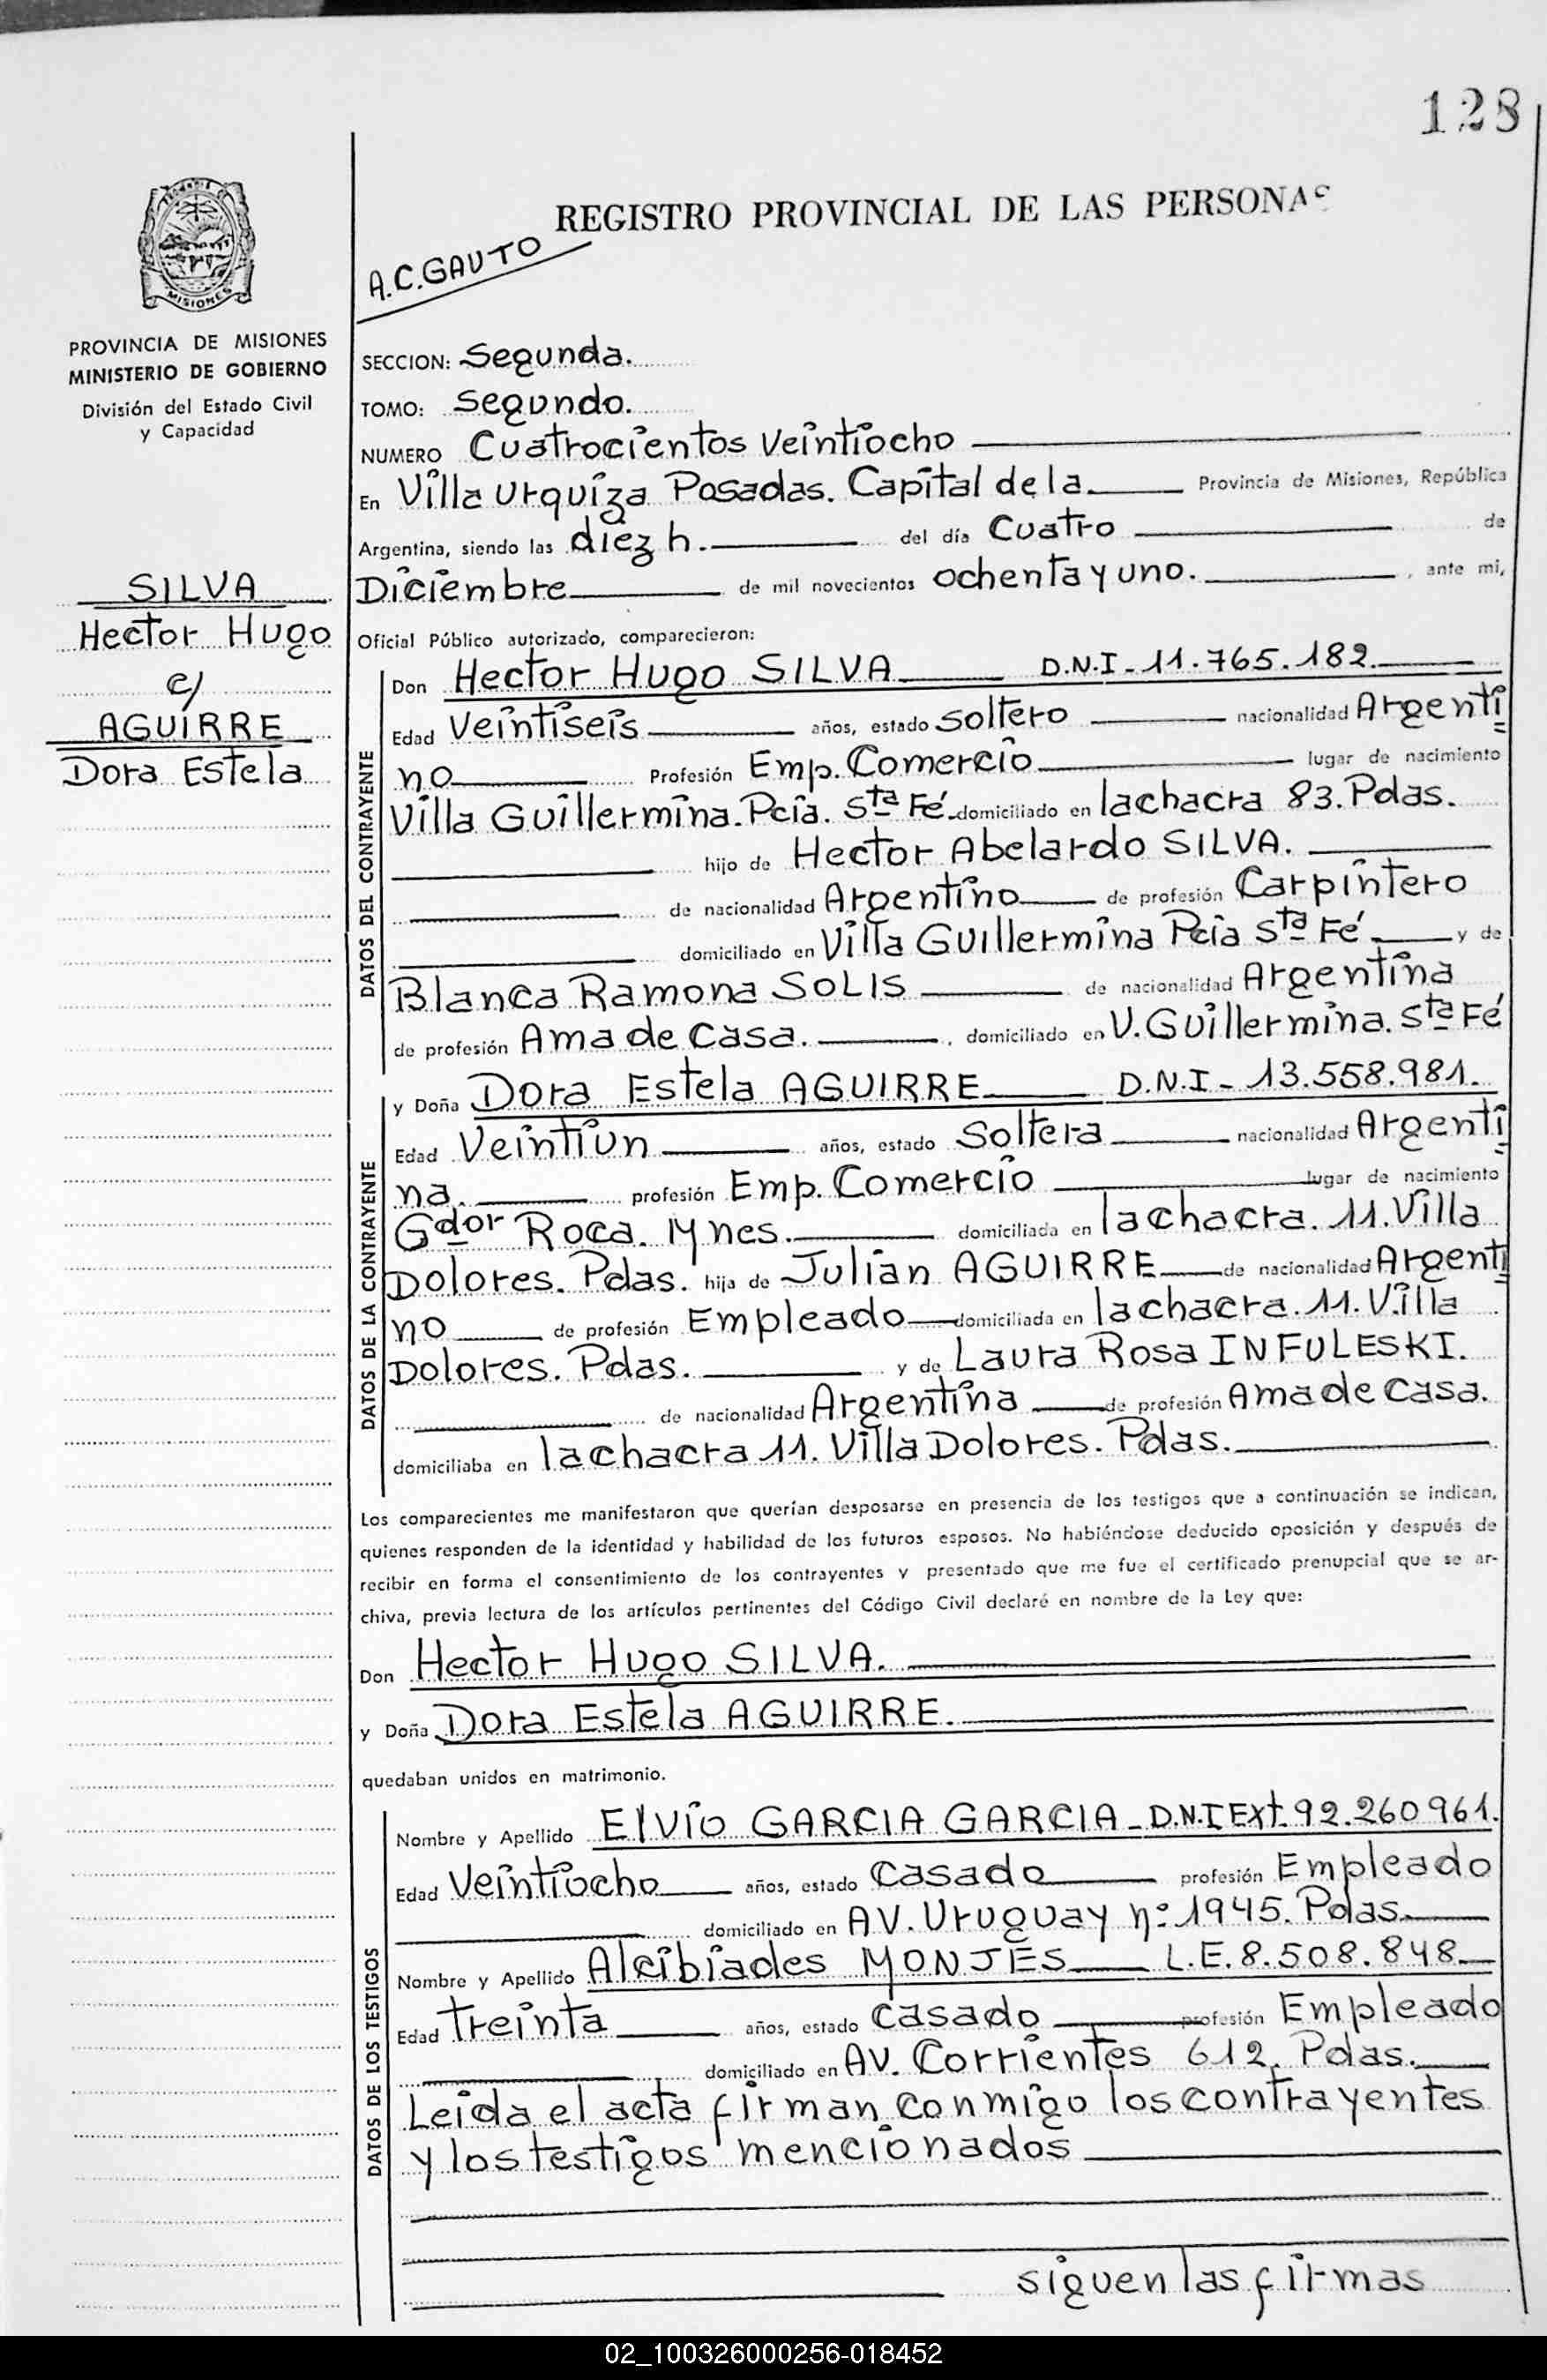 128
REGISTRO PROVINCIAL DE LAS PERSONAS
A.C.GAUTO
MISIONES
PROVINCIA DE MISIONES
MINISTERIO DE GOBIERNO
División del Estado Civil
y Capacidad
SILVA
Hector Hugo
c/
AGUIRRE
Dora Estela
SECCION: Segunda.
TOMO: Segundo.
NUMERO Cuatrocientos Veintiocho
En Villa Urquiza Posadas. Capital de la Provincia de Misiones, República
Argentina, siendo las diez h. del día Cuatro de
Diciembre de mil novecientos ochenta y uno. , ante mi,
Oficial Público autorizado, comparecieron:
DATOS DEL CONTRAYENTE
Don Hector Hugo SILVA D.N.I-11.765.182.
Edad Veintiseis años, estado soltero nacionalidad Argenti
no Profesión Emp. Comercio lugar de nacimiento
Villa Guillermina. Pcia. Sta Fé. domiciliado en lachacra 83. Pdas.
hijo de Hector Abelardo SILVA.
de nacionalidad Argentino de profesión Carpintero
domiciliado en Villa Guillermina Pcia Sta Fé y de
Blanca Ramona SOLIS de nacionalidad Argentina
de profesión Ama de Casa. , domiciliado en V. Guillermina. Sta Fé
DATOS DE LA CONTRAYENTE
y Doña Dora Estela AGUIRRE D.N.I-13.558.981.
Edad Veintiun años, estado Soltera nacionalidad Argenti
na. profesión Emp. Comercio lugar de nacimiento
Gdor Roca. Mnes. domiciliada en lachacra. 11. Villa
Dolores. Pdas. hija de Julian AGUIRRE de nacionalidad Argenti
no de profesión Empleado domiciliada en lachacra. 11. Villa
Dolores. Pdas. y de Laura Rosa INFULESKI.
de nacionalidad Argentina de profesión Ama de Casa.
domiciliaba en lachacra 11. Villa Dolores. Pdas.
Los comparecientes me manifestaron que querían desposarse en presencia de los testigos que a continuación se indican,
quienes responden de la identidad y habilidad de los futuros esposos. No habiéndose deducido oposición y después de
recibir en forma el consentimiento de los contrayentes y presentado que me fue el certificado prenupcial que se ar-
chiva, previa lectura de los artículos pertinentes del Código Civil declaré en nombre de la Ley que:
Don Hector Hugo SILVA.
y Doña Dora Estela AGUIRRE.
quedaban unidos en matrimonio.
DATOS DE LOS TESTIGOS
Nombre y Apellido Elvio GARCIA GARCIA - D.N.I Ext. 92.260961.
Edad Veintiocho años, estado Casado profesión Empleado
domiciliado en AV. Uruguay nº 1945. Pdas.
Nombre y Apellido Alcibiades MONJES L.E. 8.508.848
Edad treinta años, estado Casado profesión Empleado
domiciliado en AV. Corrientes 612. Pdas.
Leida el acta firman conmigo los contrayentes
y los testigos mencionados
siguen las firmas
02_100326000256-018452